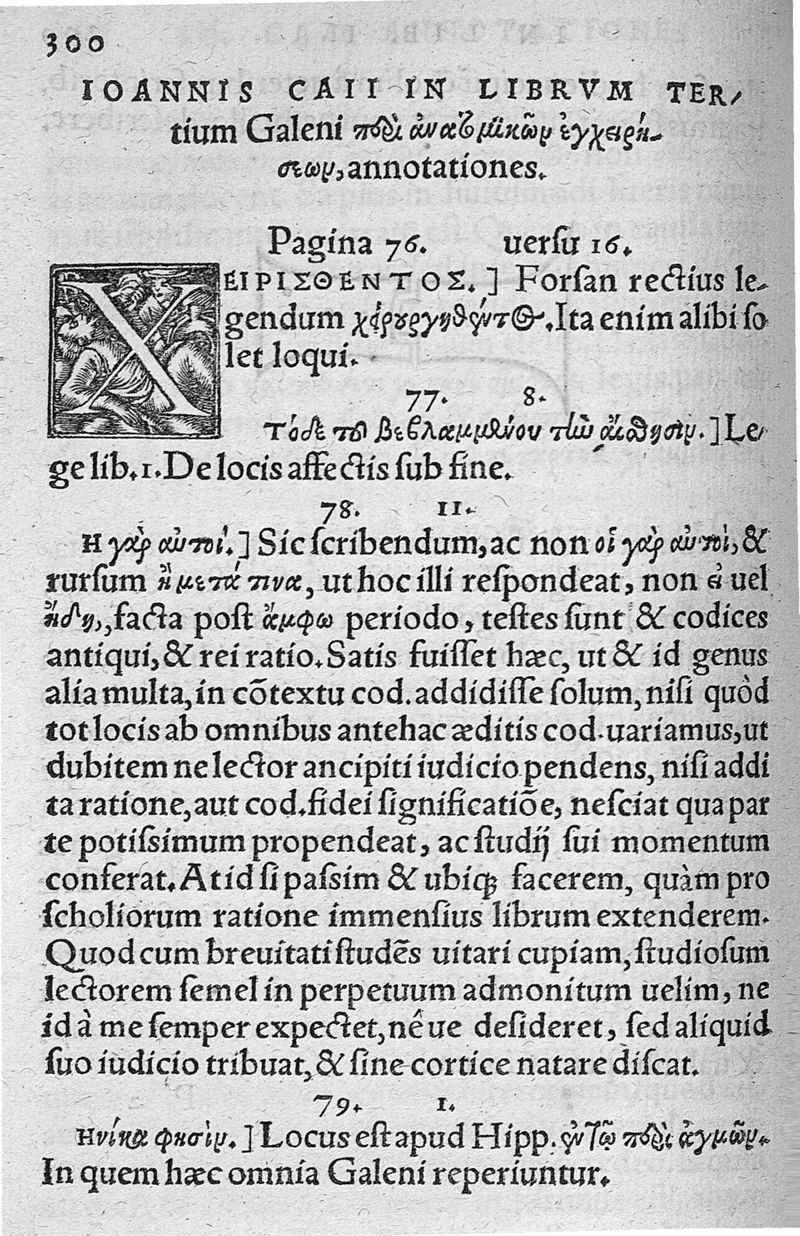 300
IOANNIS CAII IN LIBRVM TER/
tium Galeni πϵρὶ ἀνατομικῶν ἐγχειρή-
σεων, annotationes.
Pagina 76. uersu 16.
ΧΕΙΡΙΣΘΕΝΤΟΣ.] Forsan rectius le-
gendum χειρουργηθέντος. Ita enim alibi so
let loqui.
77. 8.
Τόδε τοῦ βεβλαμμένου τὴν αἴσθησιν.] Le/
ge lib. 1. De locis affectis sub fine.
78. 11.
Η γὰρ αὐτοί.] Sic scribendum, ac non οἱ γὰρ αὐτοὶ, &
rursum ἢ μετά τινα, ut hoc illi respondeat, non εἰ uel
ἤδη, facta post ἄμφω periodo, testes sunt & codices
antiqui, & rei ratio. Satis fuisset hæc, ut & id genus
alia multa, in cōtextu cod. addidisse solum, nisi quòd
tot locis ab omnibus antehac æditis cod. uariamus, ut
dubitem ne lector ancipiti iudicio pendens, nisi addi
ta ratione, aut cod. fidei significatiōe, nesciat qua par
te potissimum propendeat, ac studij sui momentum
conferat. At id si passim & ubiqꝫ facerem, quàm pro
scholiorum ratione immensius librum extenderem.
Quod cum breuitati studēs uitari cupiam, studiosum
lectorem semel in perpetuum admonitum uelim, ne
id à me semper expectet, nê ue desideret, sed aliquid
suo iudicio tribuat, & sine cortice natare discat.
79. 1.
Ηνίκα φησίν.] Locus est apud Hipp. ἐν τῷ πϵρὶ ἀγμῶν.
In quem hæc omnia Galeni reperiuntur.